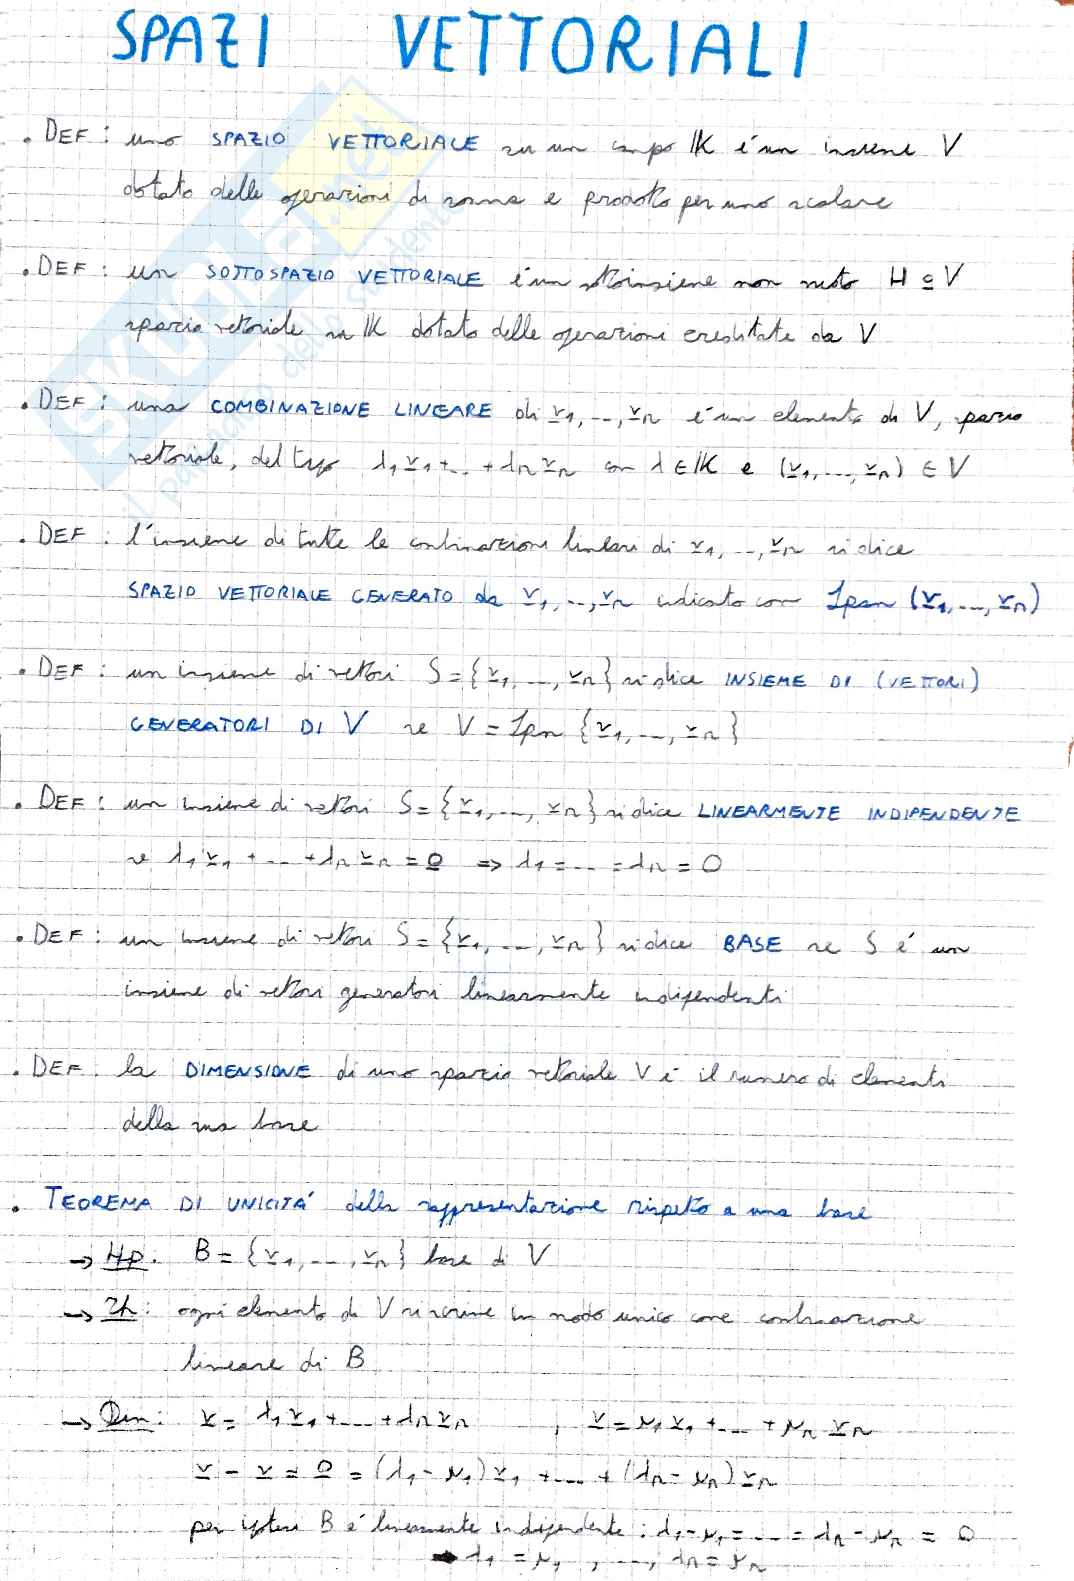 SPAZI VETTORIALI
. DEF : uno SPAZIO VETTORIALE su un campo 𝕂 é un insieme V
dotato delle operazioni di somma e prodotto per uno scalare
. DEF : un SOTTOSPAZIO VETTORIALE é un sottoinsieme non vuoto H ⊆ V
spazio vettoriale su 𝕂 dotato delle operazioni ereditate da V
. DEF : una COMBINAZIONE LINEARE di v₁, ..., vₙ é un elemento di V, spazio
vettoriale, del tipo λ₁v₁+...+λₙvₙ con λ ∈ 𝕂 e (v₁, ..., vₙ) ∈ V
. DEF : l'insieme di tutte le combinazioni lineari di v₁, ..., vₙ si dice
SPAZIO VETTORIALE GENERATO da v₁, ..., vₙ indicato con Span (v₁, ..., vₙ)
. DEF : un insieme di vettori S = {v₁, ..., vₙ} si dice INSIEME DI (VETTORI)
GENERATORI DI V se V = Span {v₁, ..., vₙ}
. DEF : un insieme di vettori S = {v₁, ..., vₙ} si dice LINEARMENTE INDIPENDENTE
se λ₁v₁ + ... + λₙvₙ = 0 => λ₁ = ... = λₙ = 0
. DEF : un insieme di vettori S = {v₁, ..., vₙ} si dice BASE se S é un
insieme di vettori generatori linearmente indipendenti
. DEF : la DIMENSIONE di uno spazio vettoriale V é il numero di elementi
della sua base
. TEOREMA DI UNICITÁ della rappresentazione rispetto a una base
→ Hp: B = {v₁, ..., vₙ} base di V
→ Th: ogni elemento di V si scrive in modo unico come combinazione
lineare di B
→ Dim: v = λ₁v₁ + ... + λₙvₙ , v = μ₁v₁ + ... + μₙvₙ
v - v = 0 = (λ₁ - μ₁)v₁ + ... + (λₙ - μₙ)vₙ
per ipotesi B é linearmente indipendente : λ₁-μ₁ = ... = λₙ-μₙ = 0
→ λ₁ = μ₁ , ..., λₙ = μₙ
SKUOLA.net
il paradiso dello studente